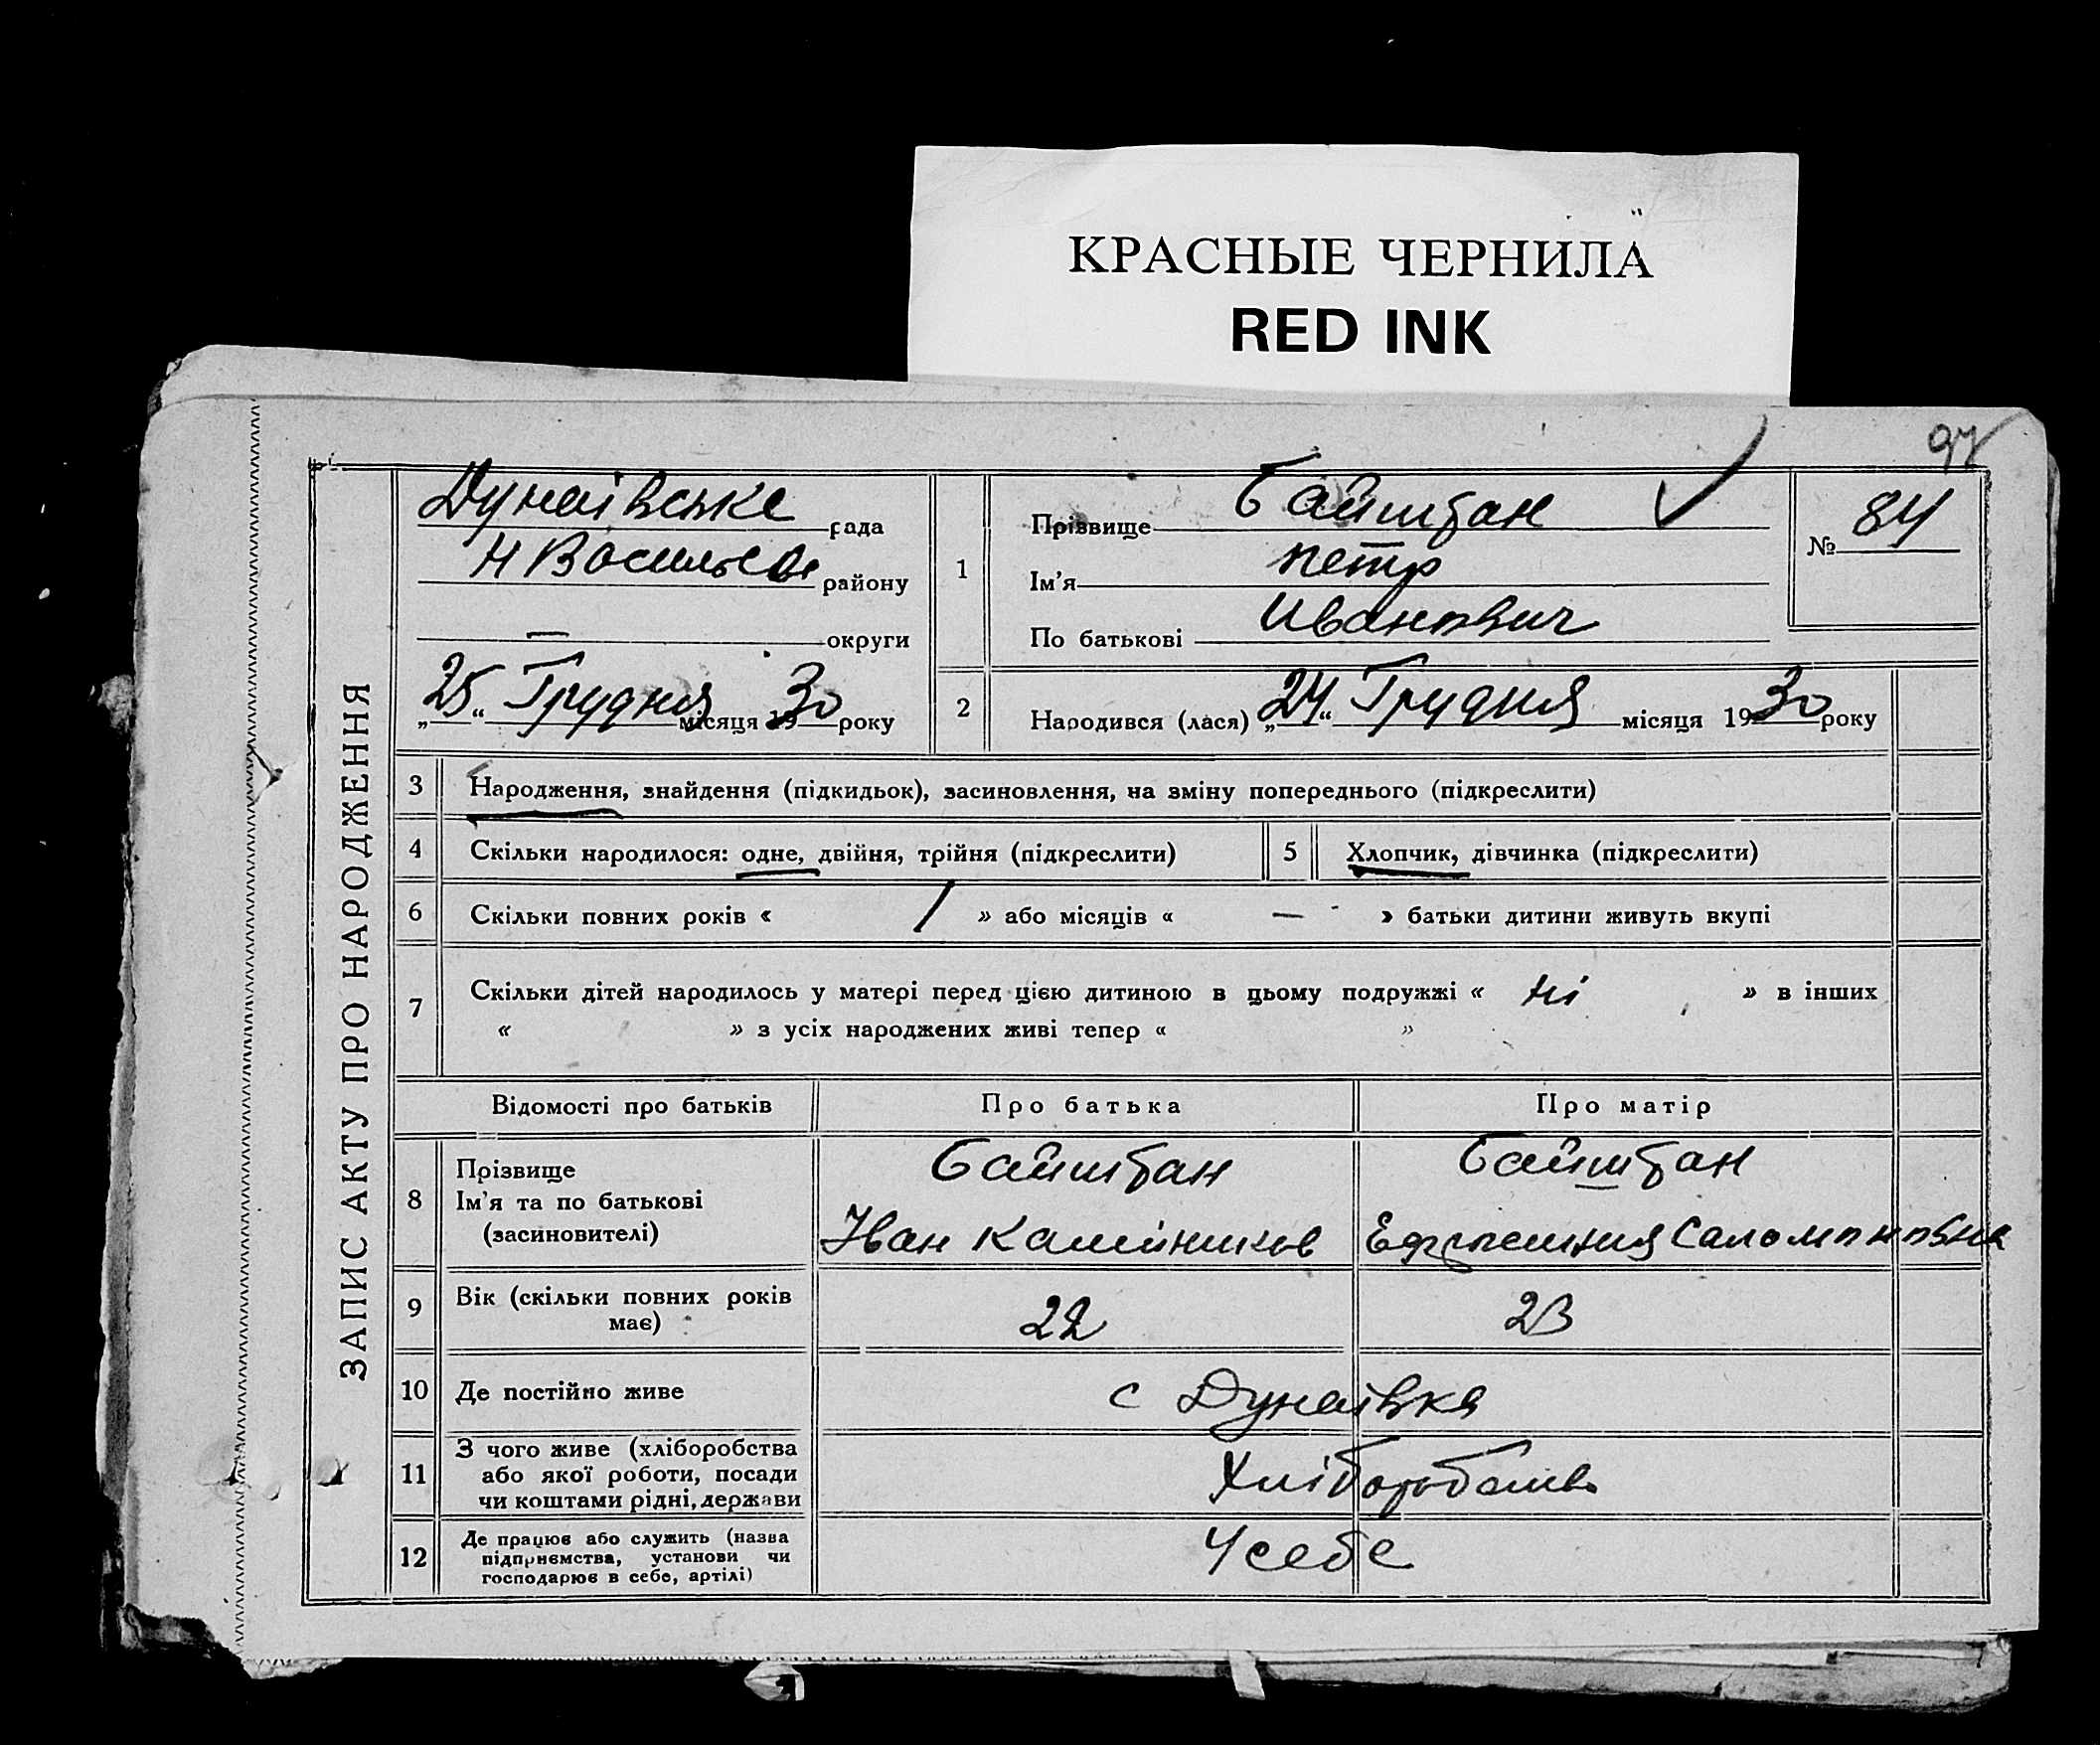 КРАСНЫЕ ЧЕРНИЛА
RED INK
97
ЗАПИС АКТУ ПРО НАРОДЖЕННЯ
Дунаївське рада
Н Васильев району
— округи
„25“ Грудня місяця 1930 року
1
Прізвище Байтбан
Ім’я Петр
По батькові Иванович
№ 84
2 Народився (лася) „24“ Грудня місяця 1930 року
3 Народження, знайдення (підкидьок), засиновлення, на зміну попереднього (підкреслити)
4 Скільки народилося: одне, двійня, трійня (підкреслити) 5 Хлопчик, дівчинка (підкреслити)
6 Скільки повних років « 1 » або місяців « — » батьки дитини живуть вкупі
7 Скільки дітей народилось у матері перед цією дитиною в цьому подружжі « ні » в інших
« » з усіх народжених живі тепер « »
Відомості про батьків Про батька Про матір
8 Прізвище
Ім’я та по батькові
(засиновителі)
Байтбан
Іван
Байтбан
9 Вік (скільки повних років
має)
22 23
10 Де постійно живе с Дунаівка
11 З чого живе (хліборобства
або якої роботи, посади
чи коштами рідні, держави
Хліборобств
12 Де працює або служить (назва
підприємства, установи чи
господарює в себе, артілі)
У себе